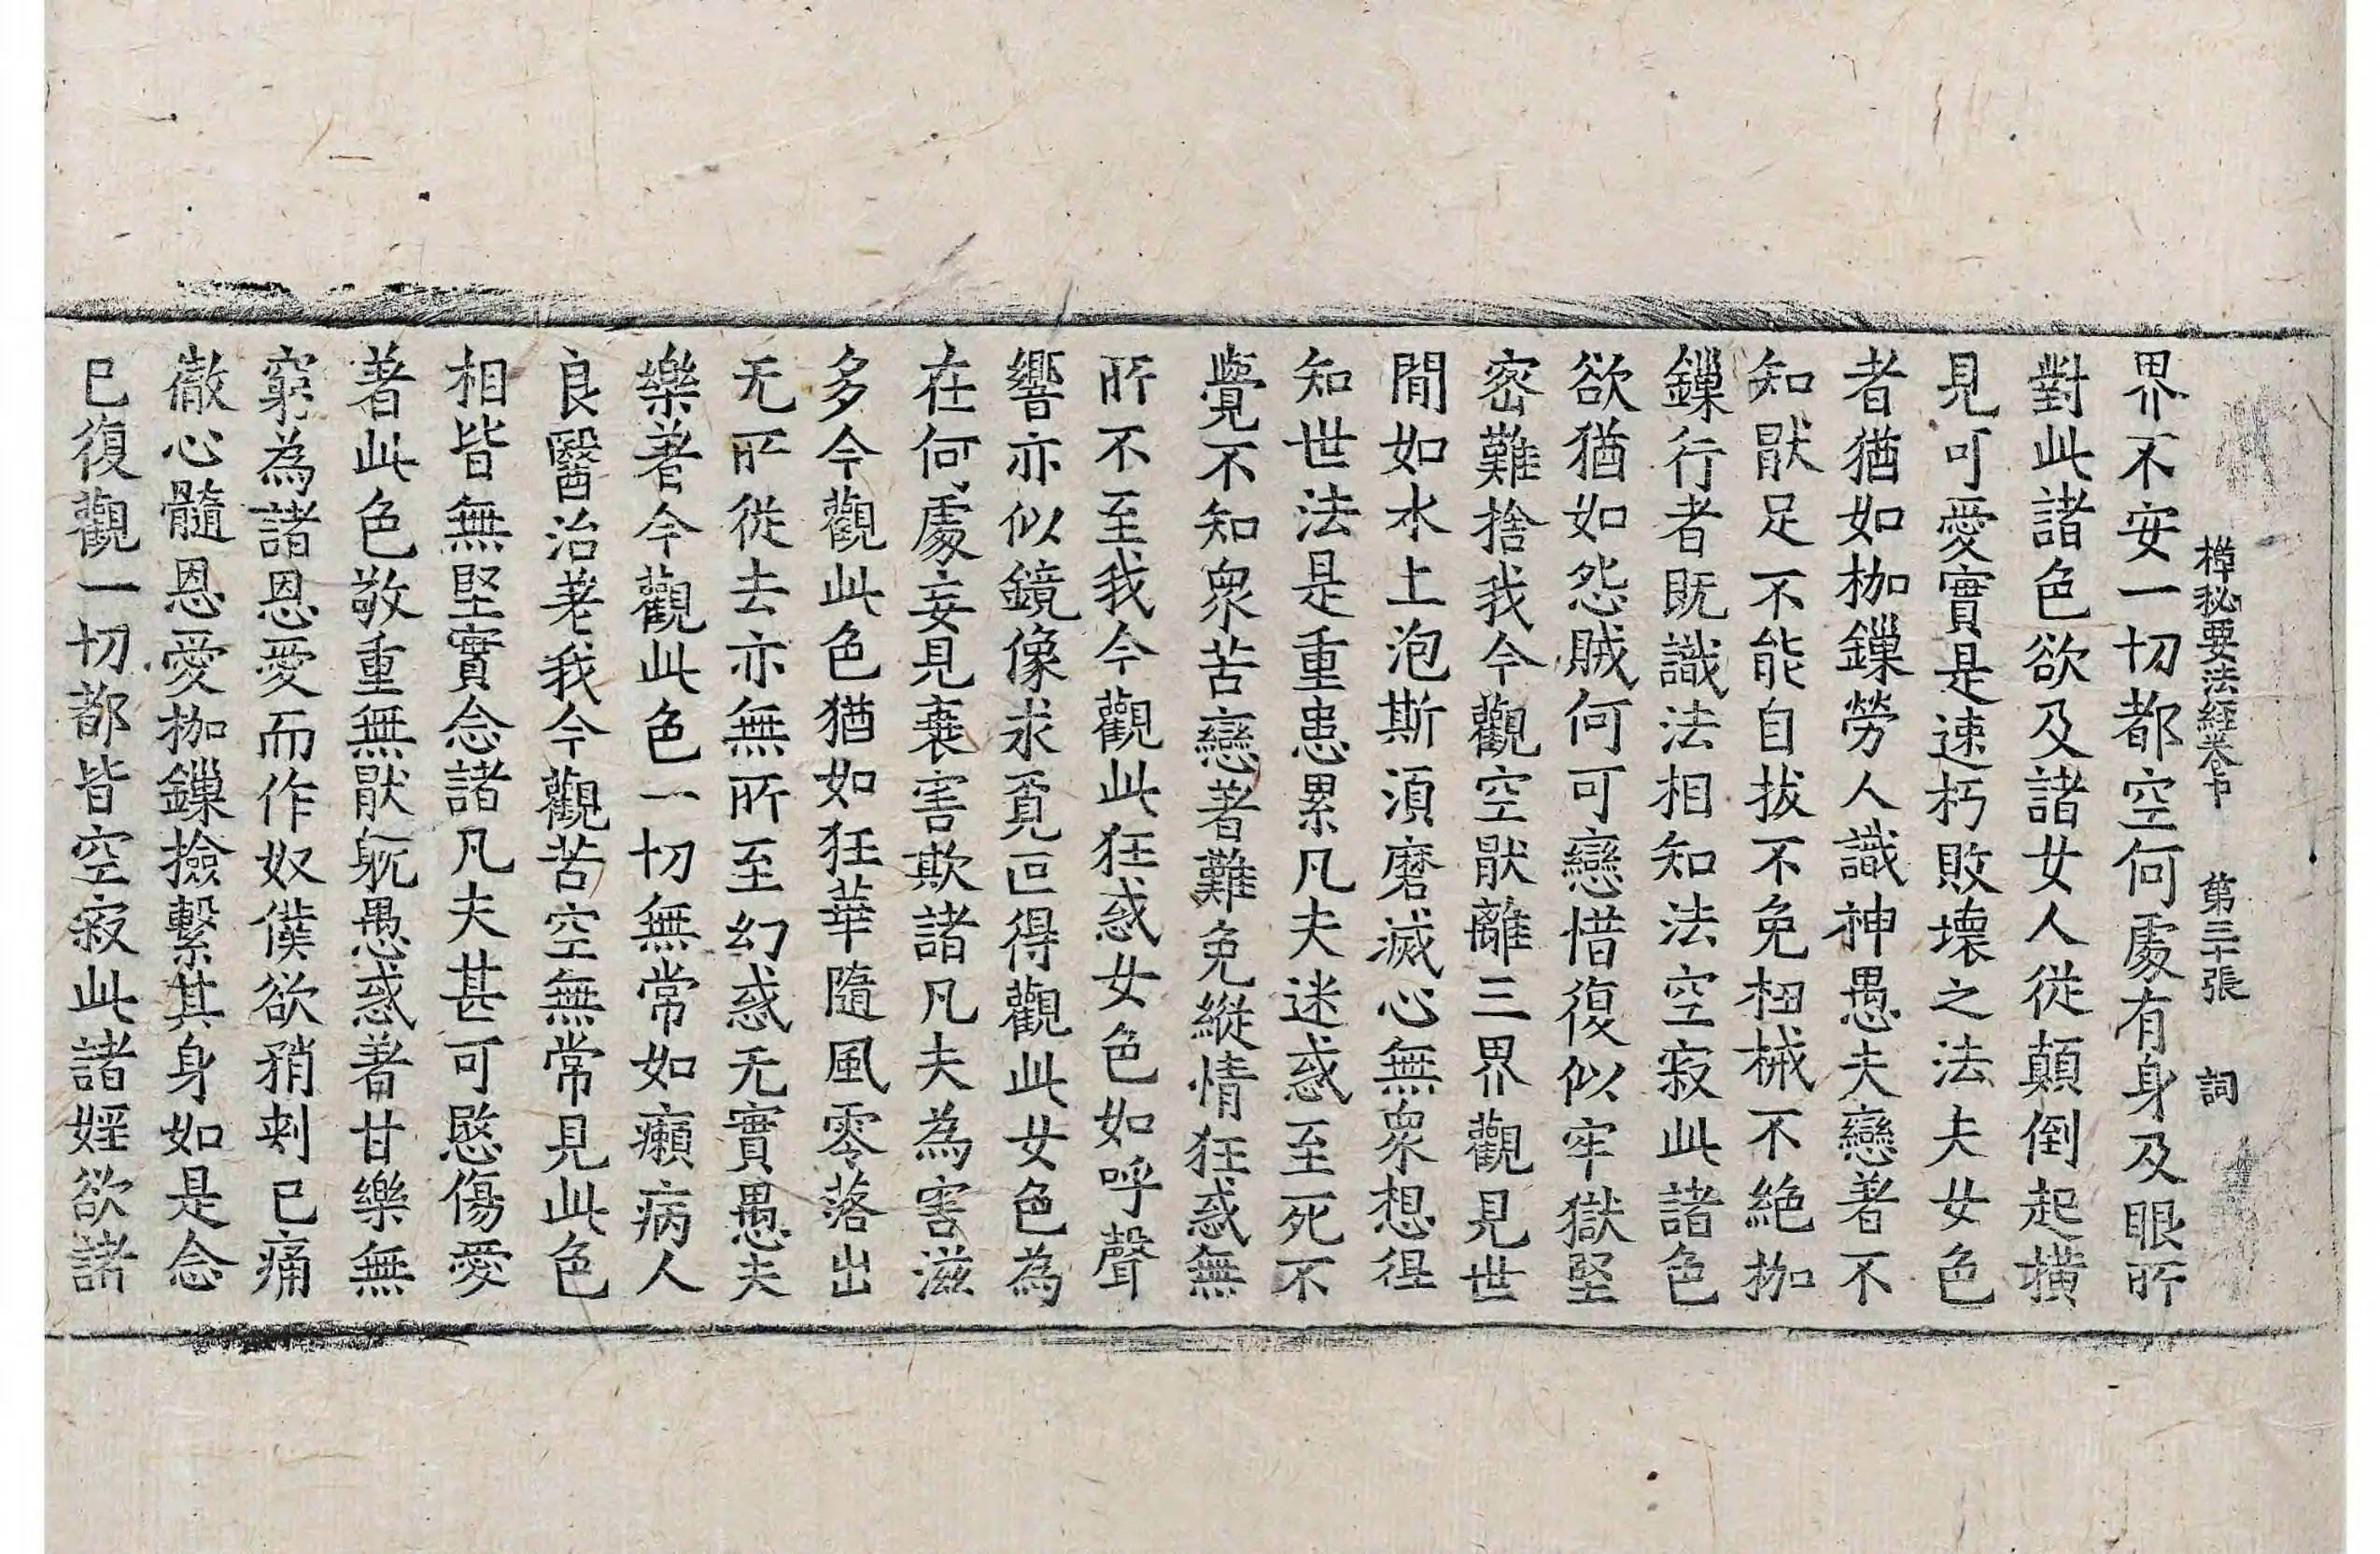 禪秘要法經卷中 第三十張 詞
界不安一切都空何處有身及眼所
對此諸色欲及諸女人從顛倒起橫
見可愛實是速朽敗壞之法夫女色
者猶如枷鏁勞人識神愚夫戀著不
知猒足不能自拔不免杻械不絶枷
鏁行者既識法相知法空寂此諸色
欲猶如怨賊何可戀惜復似牢獄堅
密難捨我今觀空猒離三界觀見世
間如水上泡斯須磨滅心無衆想徎
知世法是重患累凡夫迷惑至死不
覺不知衆苦戀著難免縱情狂惑無
所不至我今觀此狂惑女色如呼聲
響亦似鏡像求覓叵得觀此女色為
在何處妄見衰害欺諸凡夫為害滋
多今觀此色猶如狂華隨風零落出
无所從去亦無所至幻惑无實愚夫
樂著今觀此色一切無常如癩病人
良醫治差我今觀苦空無常見此色
相皆無堅實念諸凡夫甚可愍傷愛
著此色敬重無猒躭愚惑著甘樂無
窮為諸恩愛而作奴僕欲矟刺已痛
徹心髓恩愛枷鏁撿繫其身如是念
已復觀一切都皆空寂此諸婬欲諸